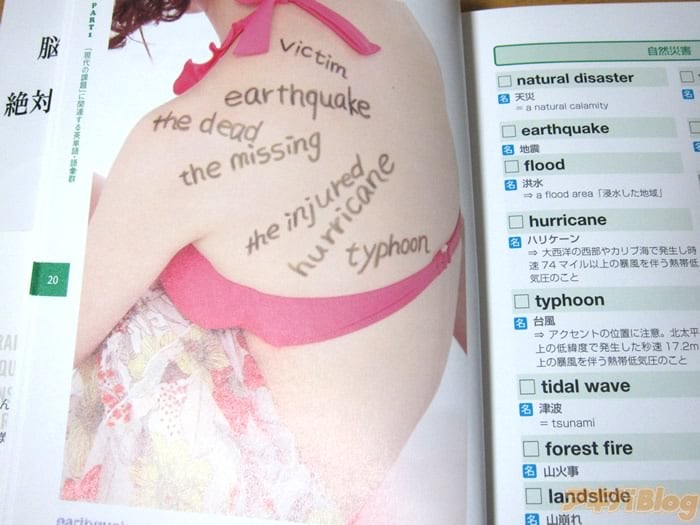 脳
絶対
PART1
「現代の課題」に関連する英単語・語彙群
20
victim
earthquake
the dead
the missing
the injured
hurricane
typhoon
自然災害
natural disaster
名 天災
= a natural calamity
earthquake
名 地震
flood
名 洪水
⇒ a flood area「浸水した地域」
hurricane
名 ハリケーン
⇒ 大西洋の西部やカリブ海で発生し時
速 74 マイル以上の暴風を伴う熱帯低
気圧のこと
typhoon
名 台風
⇒ アクセントの位置に注意。北太平
上の低緯度で発生した秒速 17.2m
上の暴風を伴う熱帯低気圧のこと
tidal wave
名 津波
= tsunami
forest fire
名 山火事
landslide
名 山崩れ
アキバBlog